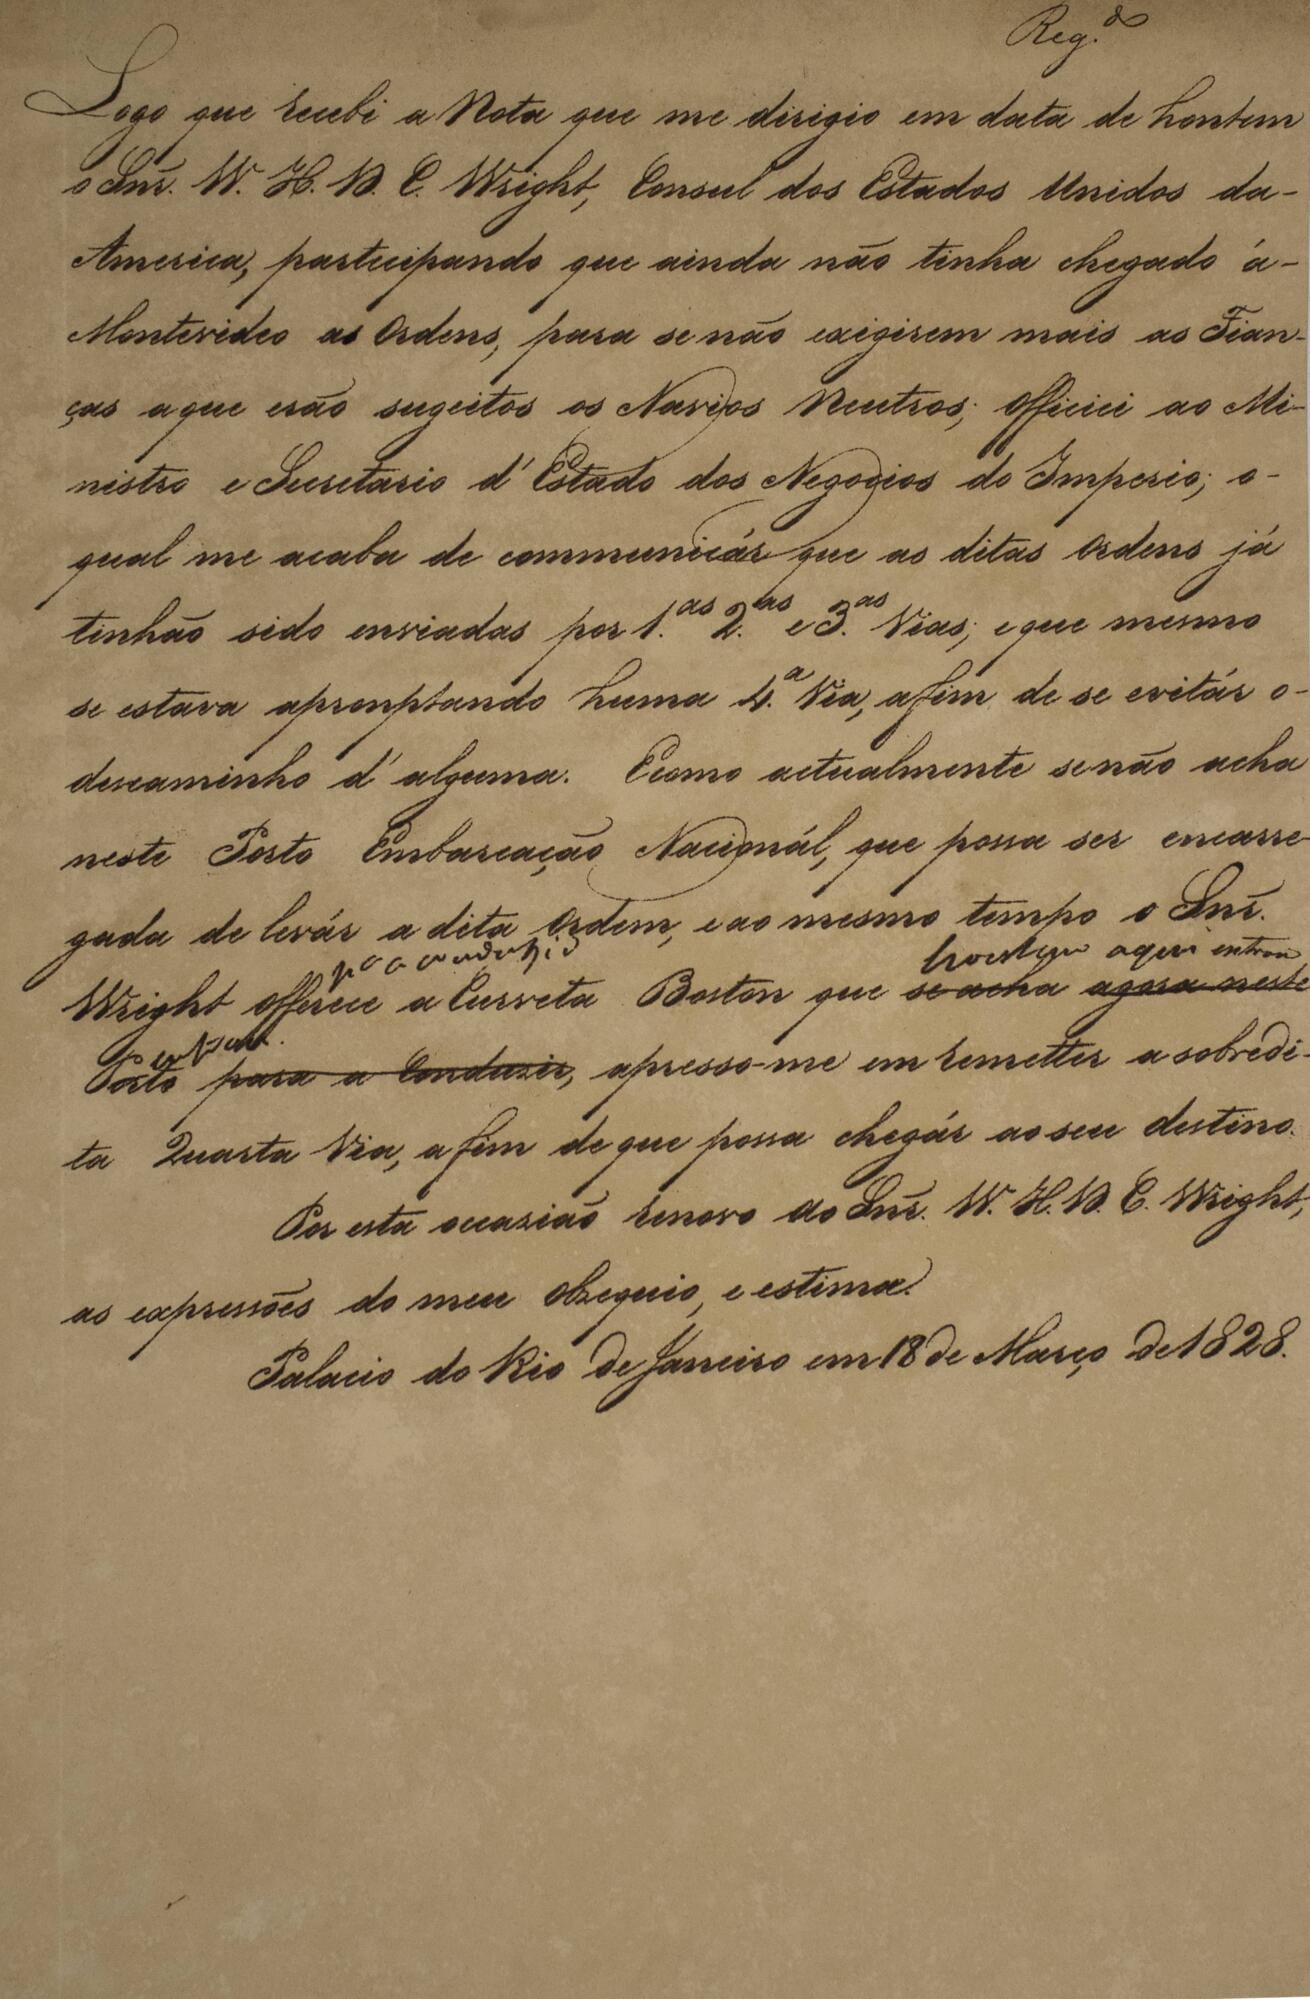 Reg.do
Logo que recebi a Nota que me dirigio em data de hontem
o Snr. W. H. D. C. Wright, Consul dos Estados Unidos da-
America, partecipando que ainda não tinha chegado á-
Montevideo as Ordens, para se não exigirem mais as Fian-
ças a que erão sugeitos os Navios Neutros; Officiei ao Mi-
nistro e Secretario d'Estado dos Negocios do Imperio; o-
qual me acaba de communicár que as ditas Ordens já
tinhão sido enviadas por 1.as 2.as e 3.as Vias; e que mesmo
se estava apromptando huma 4.a Via, a fim de se evitár o-
descaminho d'alguma. E como actualmente se não acha
neste Porto Embarcação Nacionál, que possa ser encarre-
gada de levár a dita Ordem, e ao mesmo tempo o Snr.
pa a conduzir aqui entrou
Wright offerece a Curveta Boston que se acha agora neste
Porto para a Conduzir, apresso-me em remetter a sobredi-
ta Quarta Via, a fim de que possa chegár ao seu destino.
Por esta occazião renovo ao Snr. W. H. D. C. Wright,
as expressões do meu obzequio, e estima.
Palacio do Rio de Janeiro em 18 de Março de 1828.